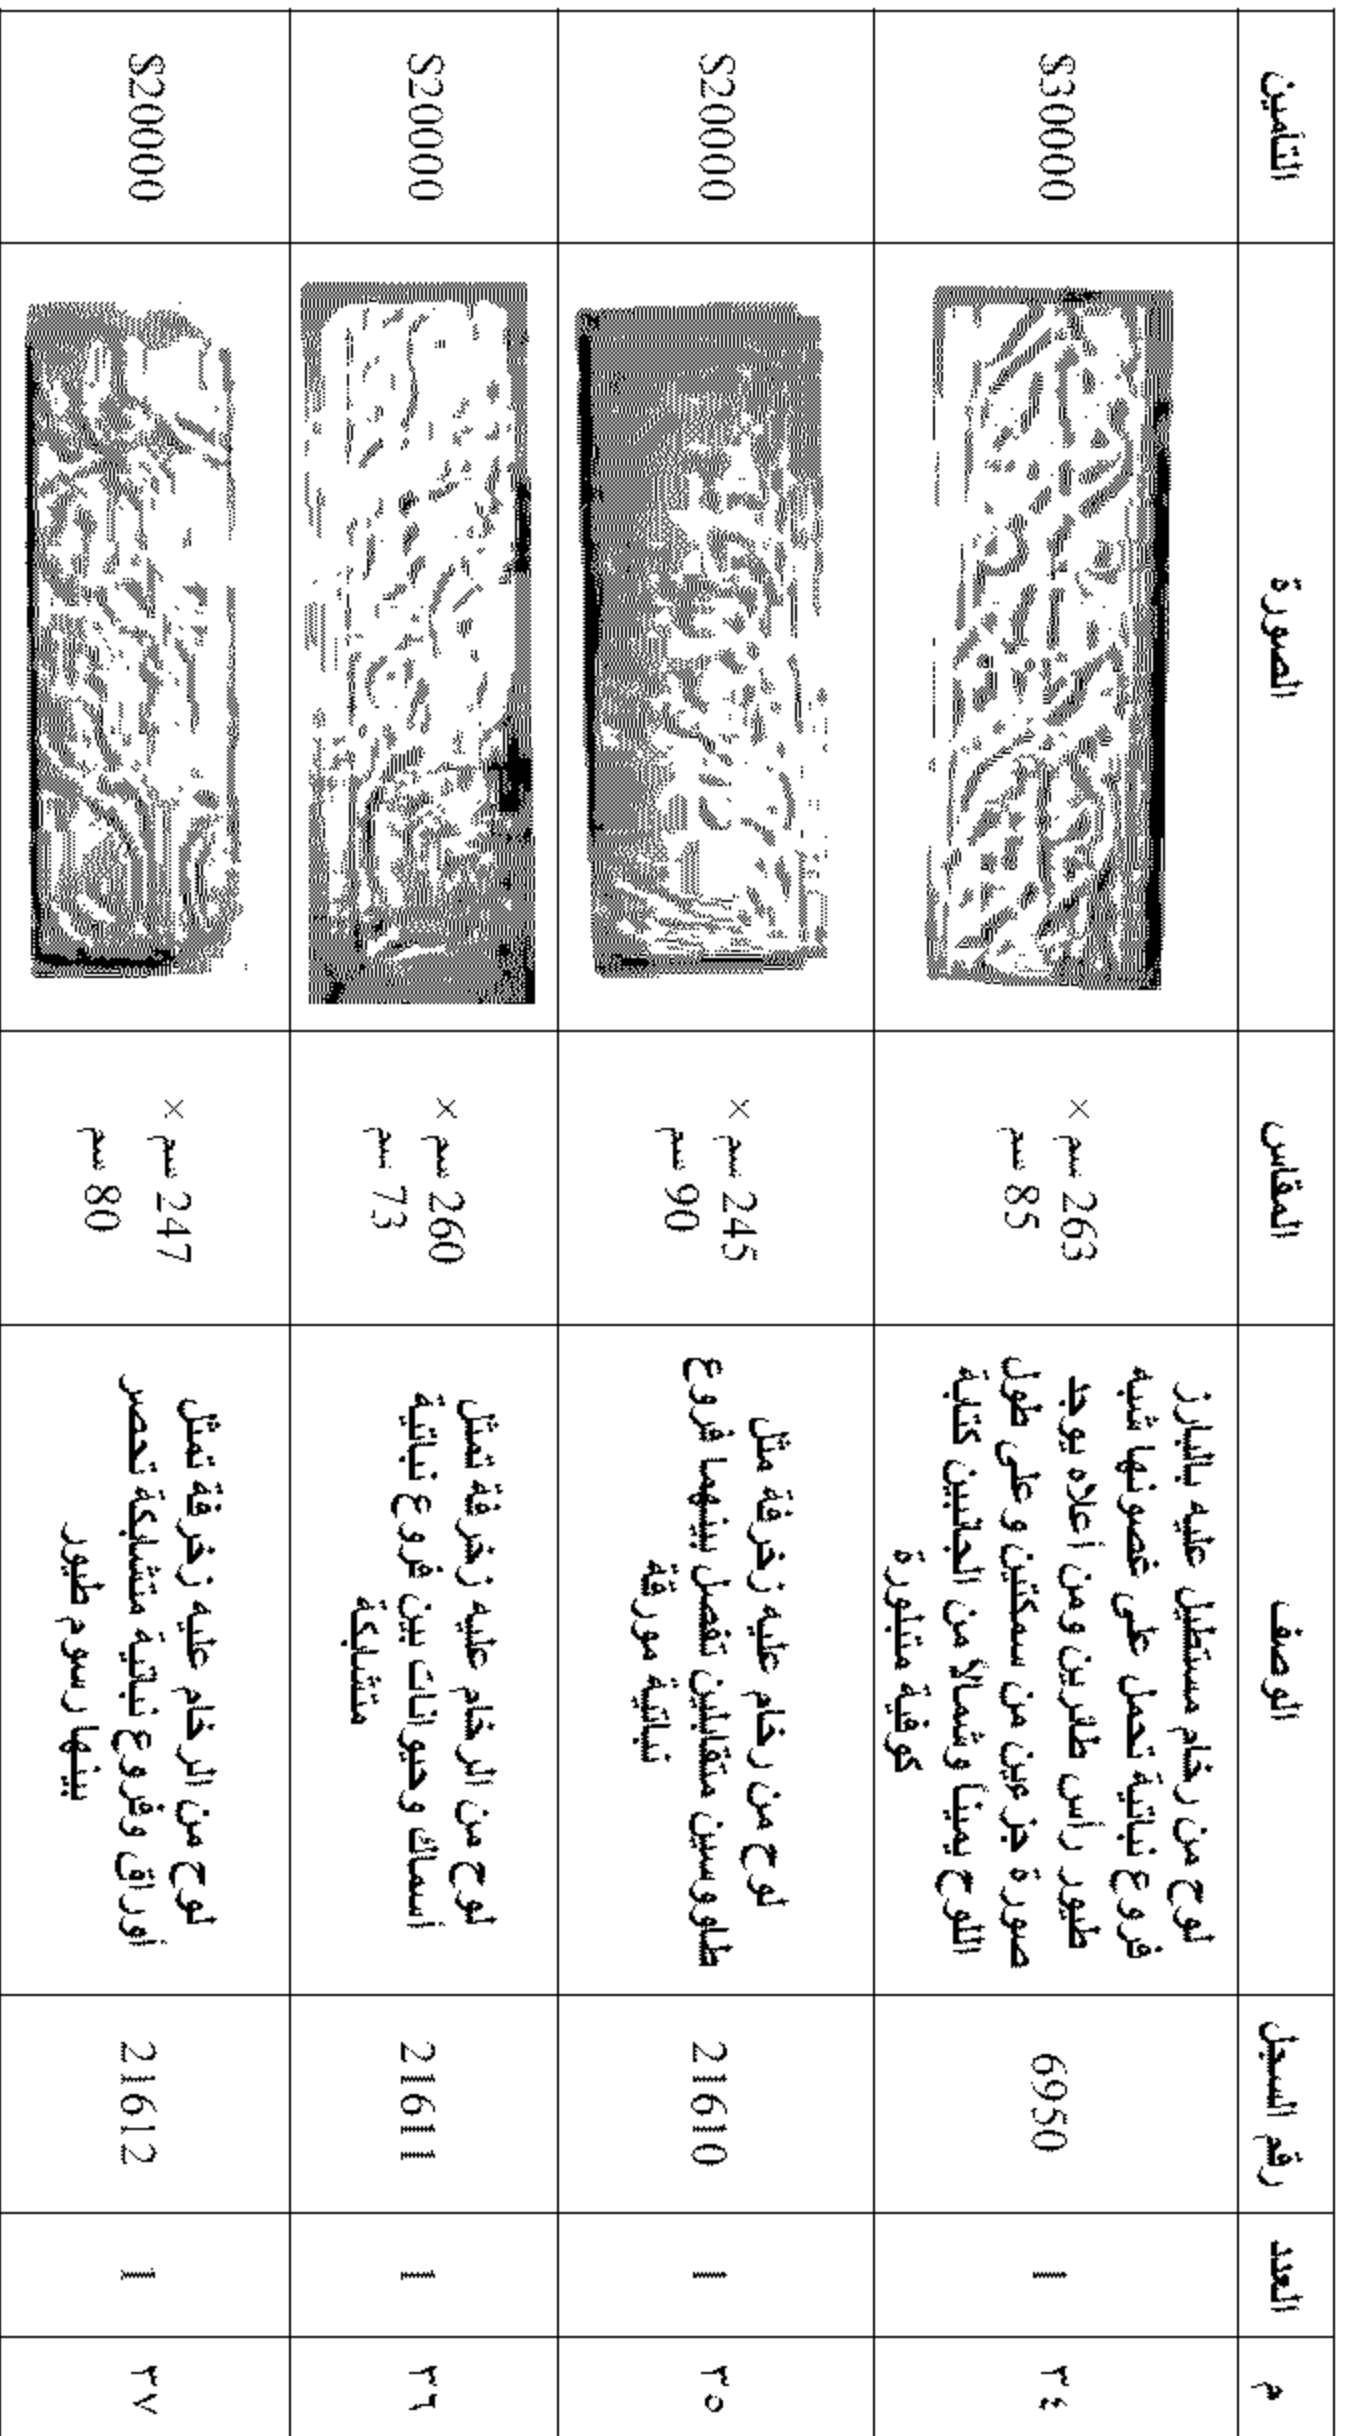 م
العدد
رقم السجل
الوصف
المقاس
الصورة
التأمين
٣٤
1
6950
لوح من رخام مستطيل عليه بالبارز
فروع نباتية تحمل على غصونها شبه
طيور رأس طائرين ومن أعلاه يوجد
صورة جزءين من سمكتين وعلى طول
اللوح يمينا وشمالا من الجانبين كتابة
كوفية متبلورة
263 سم ×
85 سم
$30000
٣٥
1
21610
لوح من رخام عليه زخرفة مثل
طاووسين متقابلين تفصل بينهما فروع
نباتية مورقة
245 سم ×
90 سم
$20000
٣٦
1
21611
لوح من الرخام عليه زخرفة تمثل
أسماك وحيوانات بين فروع نباتية
متشابكة
260 سم ×
73 سم
$20000
٣٧
1
21612
لوح من الرخام عليه زخرفة تمثل
أوراق وفروع نباتية متشابكة تحصر
بينها رسوم طيور
247 سم ×
80 سم
$20000